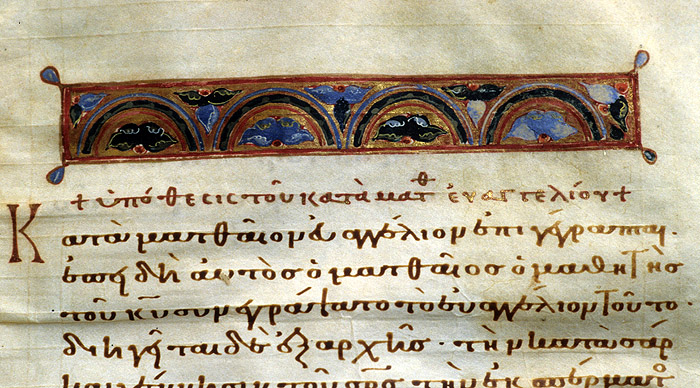 + ὑπόθεσις τοῦ κατὰ ματθ ἐυαγγελίου +
Κατὰ ματθαῖον ἐυαγγέλιον ἐπιγέγραπται.
ἐπειδὴ ἀυτὸς ὁ ματθαῖος ὁ μαθητὴς
τοῦ κυ συνεγράψατο τὸ ἐυαγγέλιον τοῦτο·
διηγεῖται δὲ ἐξ ἀρχῆς· τὴν κατὰ σάρ
τὴν ἐκ σπέρματο